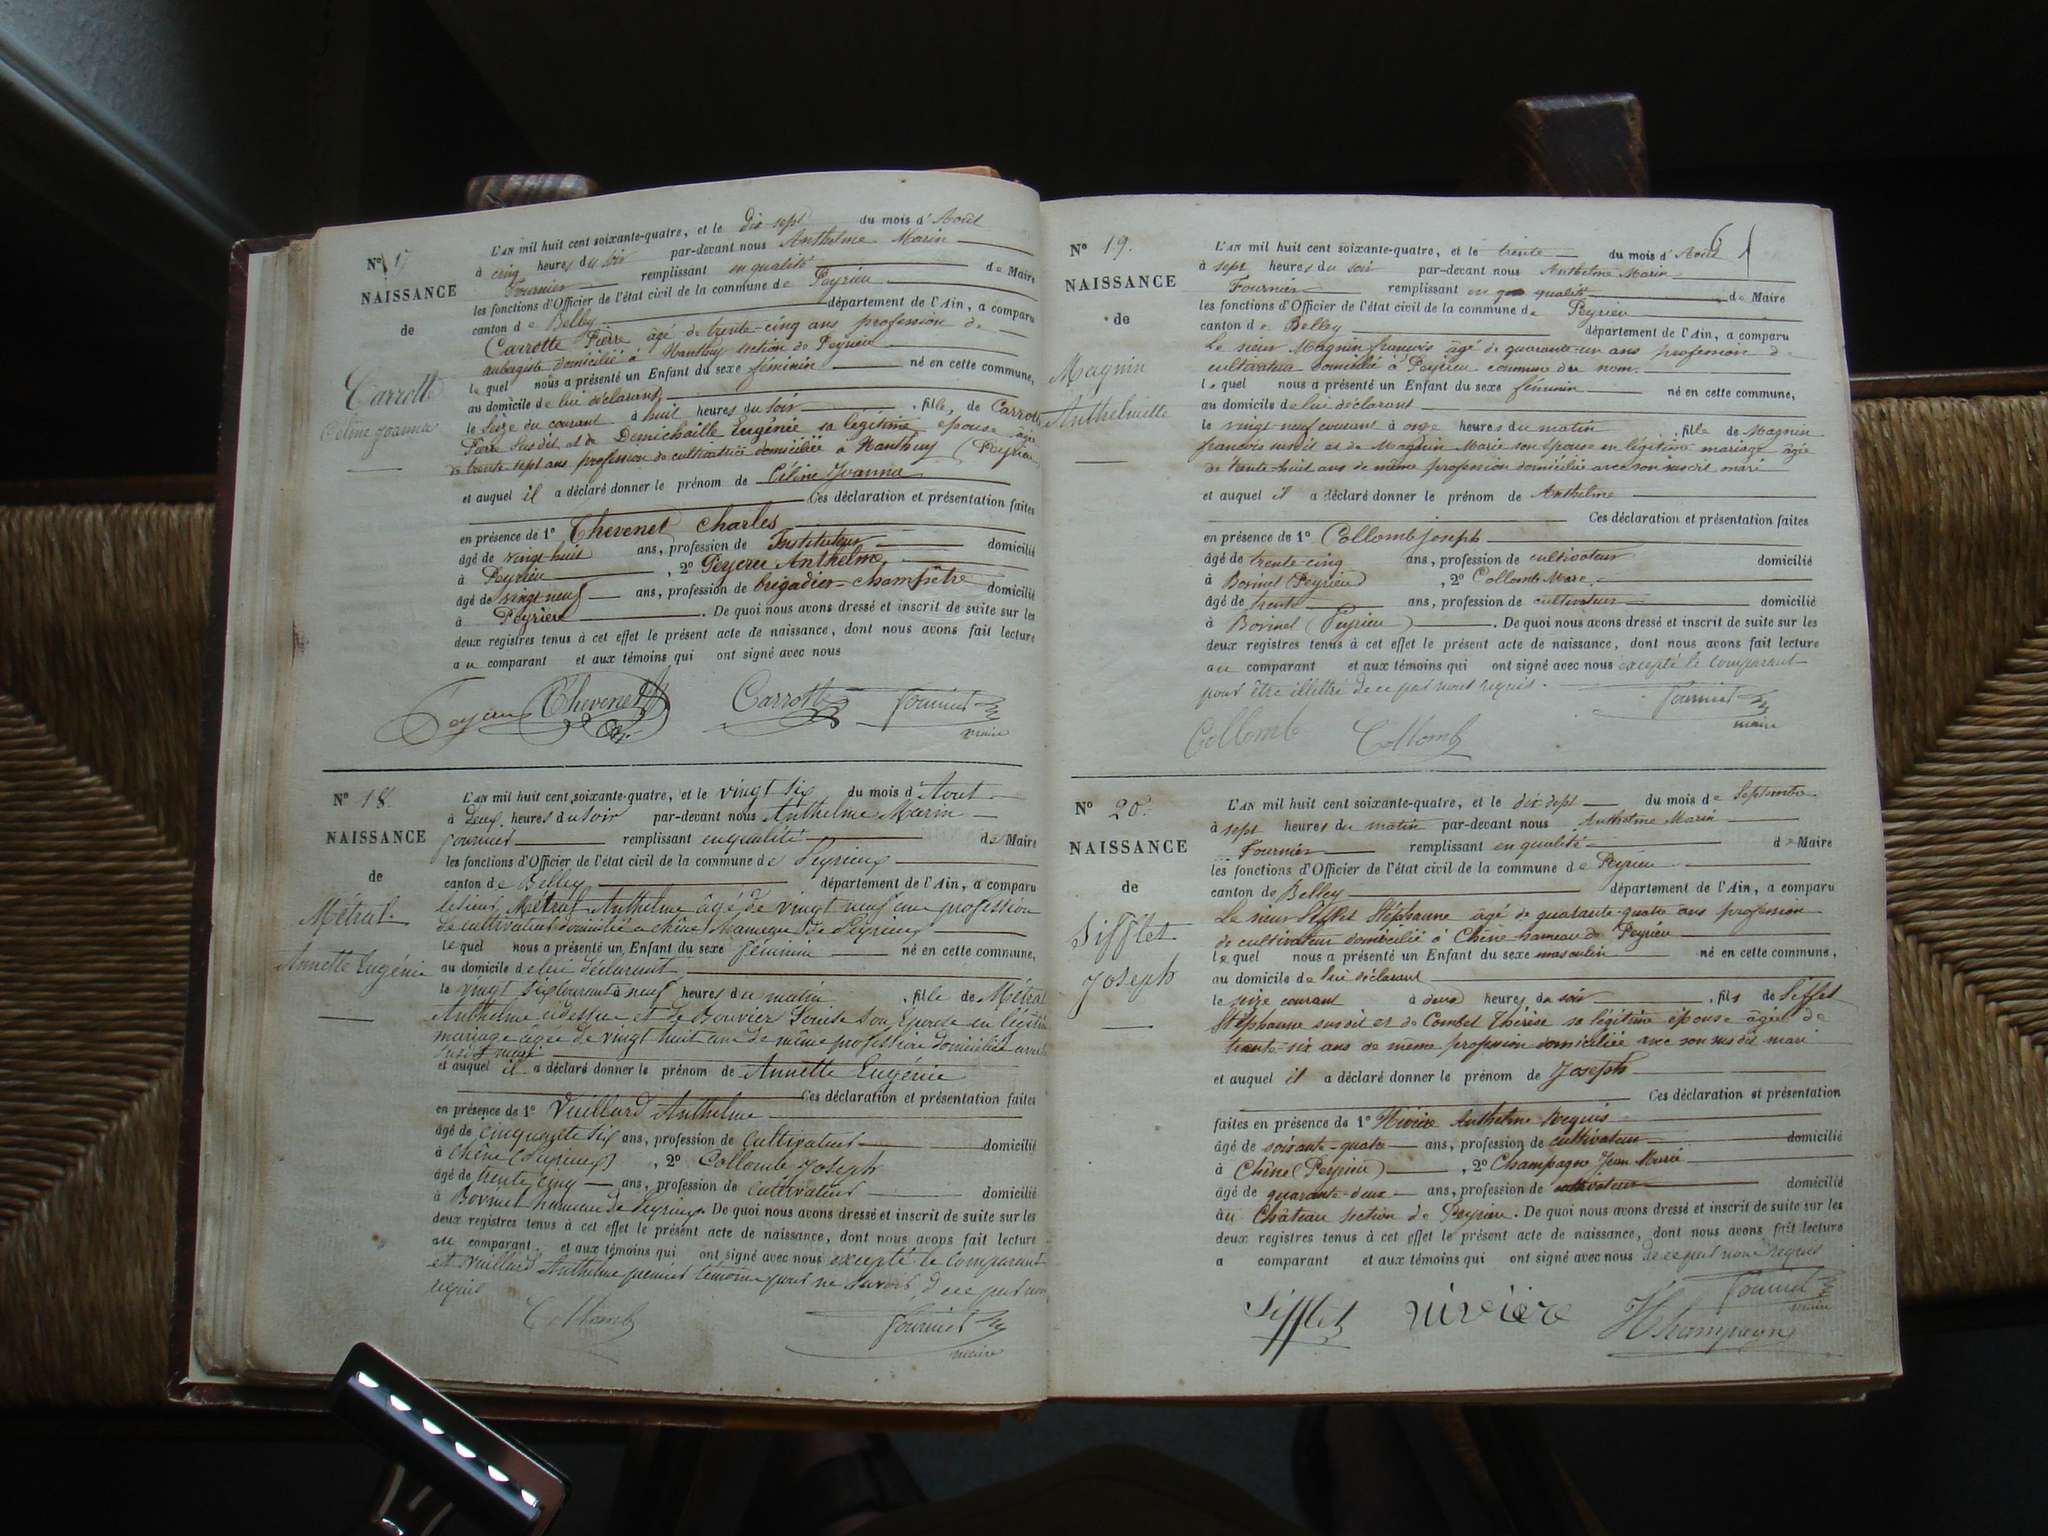 N° 17
NAISSANCE
de
Carrotte
Céline Joanna
L'AN mil huit cent soixante-quatre, et le dix sept du mois d'Août
à cinq heures du soir par-devant nous Anthelme Marin
Fournier remplissant en qualité de Maire
les fonctions d'Officier de l'état civil de la commune de Peyrieu
canton de Belley département de l'Ain, a comparu
Carrotte Pierre âgé de trente-cinq ans profession de
aubergiste domicilié à Nanthuy section de Peyrieu
lequel nous a présenté un Enfant du sexe féminin né en cette commune,
au domicile de lui déclarant
le seize du courant à huit heures du soir, fille, de Carrotte
Pierre susdit et de Demichaille Eugénie sa légitime épouse âgée
de trente sept ans profession de cultivatrice domiciliée à Nanthuy (Peyrieu)
et auquel il a déclaré donner le prénom de Céline Joanna
Ces déclaration et présentation faites
en présence de 1° Thevenet Charles
âgé de vingt huit ans, profession de Instituteur domicilié
à Peyrieu, 2° Anthelme
âgé de vingt neuf ans, profession de brigadier-champêtre domicilié
à Peyrieu. De quoi nous avons dressé et inscrit de suite sur les
deux registres tenus à cet effet le présent acte de naissance, dont nous avons fait lecture
au comparant et aux témoins qui ont signé avec nous
Thevenet Carrotte Fournier
maire
N° 18.
NAISSANCE
de
Métral
Annette Eugénie
L'AN mil huit cent soixante-quatre, et le vingt six du mois d'Aout
à deux heures du soir par-devant nous Anthelme Marin
Fournier remplissant en qualité de Maire
les fonctions d'Officier de l'état civil de la commune de Peyrieux
canton de Belley département de l'Ain, a comparu
le sieur Métral Anthelme âgé de vingt neuf ans profession
de cultivateur domicilié à Chêne hameau de Peyrieux
lequel nous a présenté un Enfant du sexe féminin né en cette commune,
au domicile de lui déclarant
le vingt six courant à neuf heures du matin, fille de Métral
Anthelme cidessus et de Bouvier Louise son Epouse en légitime
mariage âgée de vingt huit ans de même profession domiciliée avec le
susdit mari
et auquel il a déclaré donner le prénom de Annette Eugénie
Ces déclaration et présentation faites
en présence de 1° Vuillard Anthelme
âgé de cinquante six ans, profession de cultivateur domicilié
à Chêne (Peyrieux), 2° Collomb Joseph
âgé de trente cinq ans, profession de cultivateur domicilié
à Bovinel hameau de Peyrieux. De quoi nous avons dressé et inscrit de suite sur les
deux registres tenus à cet effet le présent acte de naissance, dont nous avons fait lecture
au comparant et aux témoins qui ont signé avec nous excepté le comparant
et Vuillard Anthelme premier témoin pour ne savoir de ce par nous
requis
Collomb Fournier
maire
61
N° 19.
NAISSANCE
de
Magnin
Anthelmette
L'AN mil huit cent soixante-quatre, et le trente du mois d'Août
à sept heures du soir par-devant nous Anthelme Marin
Fournier remplissant en qualité de Maire
les fonctions d'Officier de l'état civil de la commune de Peyrieu
canton de Belley département de l'Ain, a comparu
Le sieur Magnin françois âgé de quarante-un ans profession de
cultivateur domicilié à Peyrieu commune du nom.
lequel nous a présenté un Enfant du sexe féminin né en cette commune,
au domicile de lui déclarant
le vingt neuf courant à onze heures du matin, fille de Magnin
françois susdit et de Magnin Marie son épouse en légitime mariage âgée
de trente-huit ans de même profession domiciliée avec son susdit mari
et auquel il a déclaré donner le prénom de Anthelme
Ces déclaration et présentation faites
en présence de 1° Collomb Joseph
âgé de trente-cinq ans, profession de cultivateur domicilié
à Bovinel (Peyrieu), 2° Collomb Marc
âgé de trente ans, profession de cultivateur domicilié
à Bovinel (Peyrieu). De quoi nous avons dressé et inscrit de suite sur les
deux registres tenus à cet effet le présent acte de naissance, dont nous avons fait lecture
au comparant et aux témoins qui ont signé avec nous excepté le comparant
pour être illettré de ce par nous requis.
Collomb Collomb Fournier
maire
N° 20.
NAISSANCE
de
Sifflet
Joseph
L'AN mil huit cent soixante-quatre, et le dix sept du mois de Septembre
à sept heures du matin par-devant nous Anthelme Marin
Fournier remplissant en qualité de Maire
les fonctions d'Officier de l'état civil de la commune de Peyrieu
canton de Belley département de l'Ain, a comparu
Le sieur Sifflet Stéphanne âgé de quarante-quatre ans profession
de cultivateur domicilié à Chêne hameau de Peyrieu
lequel nous a présenté un Enfant du sexe masculin né en cette commune,
au domicile de lui déclarant
le seize courant à deux heures du soir, fils de Sifflet
Stéphanne susdit et de Combet Thérèse sa légitime épouse âgée de
trente-six ans de même profession domiciliée avec son susdit mari
et auquel il a déclaré donner le prénom de Joseph
Ces déclaration et présentation
faites en présence de 1° Anthelme
âgé de soixante-quatre ans, profession de cultivateur domicilié
à Chêne (Peyrieu), 2° Champagne Jean Marie
âgé de quarante-deux ans, profession de cultivateur domicilié
au Château section de Peyrieu. De quoi nous avons dressé et inscrit de suite sur les
deux registres tenus à cet effet le présent acte de naissance, dont nous avons fait lecture
a comparant et aux témoins qui ont signé avec nous de ce par nous requis
Sifflet rivière Champagne Fournier
maire